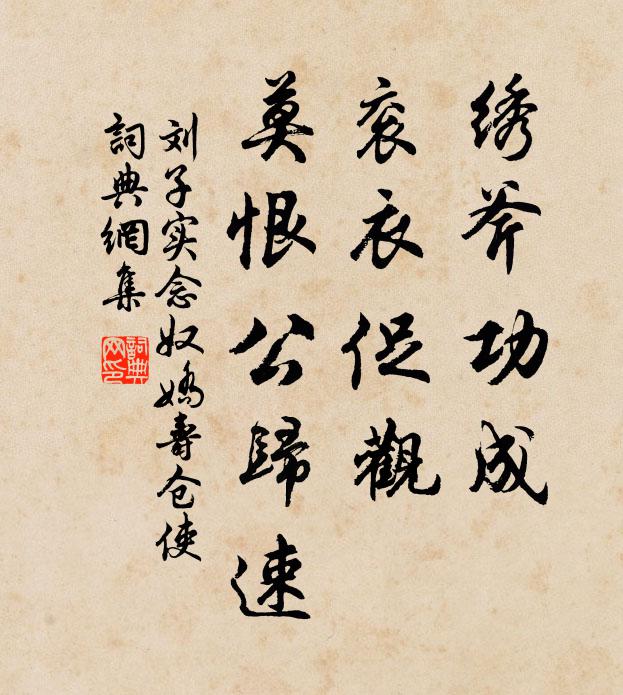 绣斧功成
衮衣促觀
莫恨公歸速
刘子实念奴嬌壽仓使
詞典網集
詞典網印